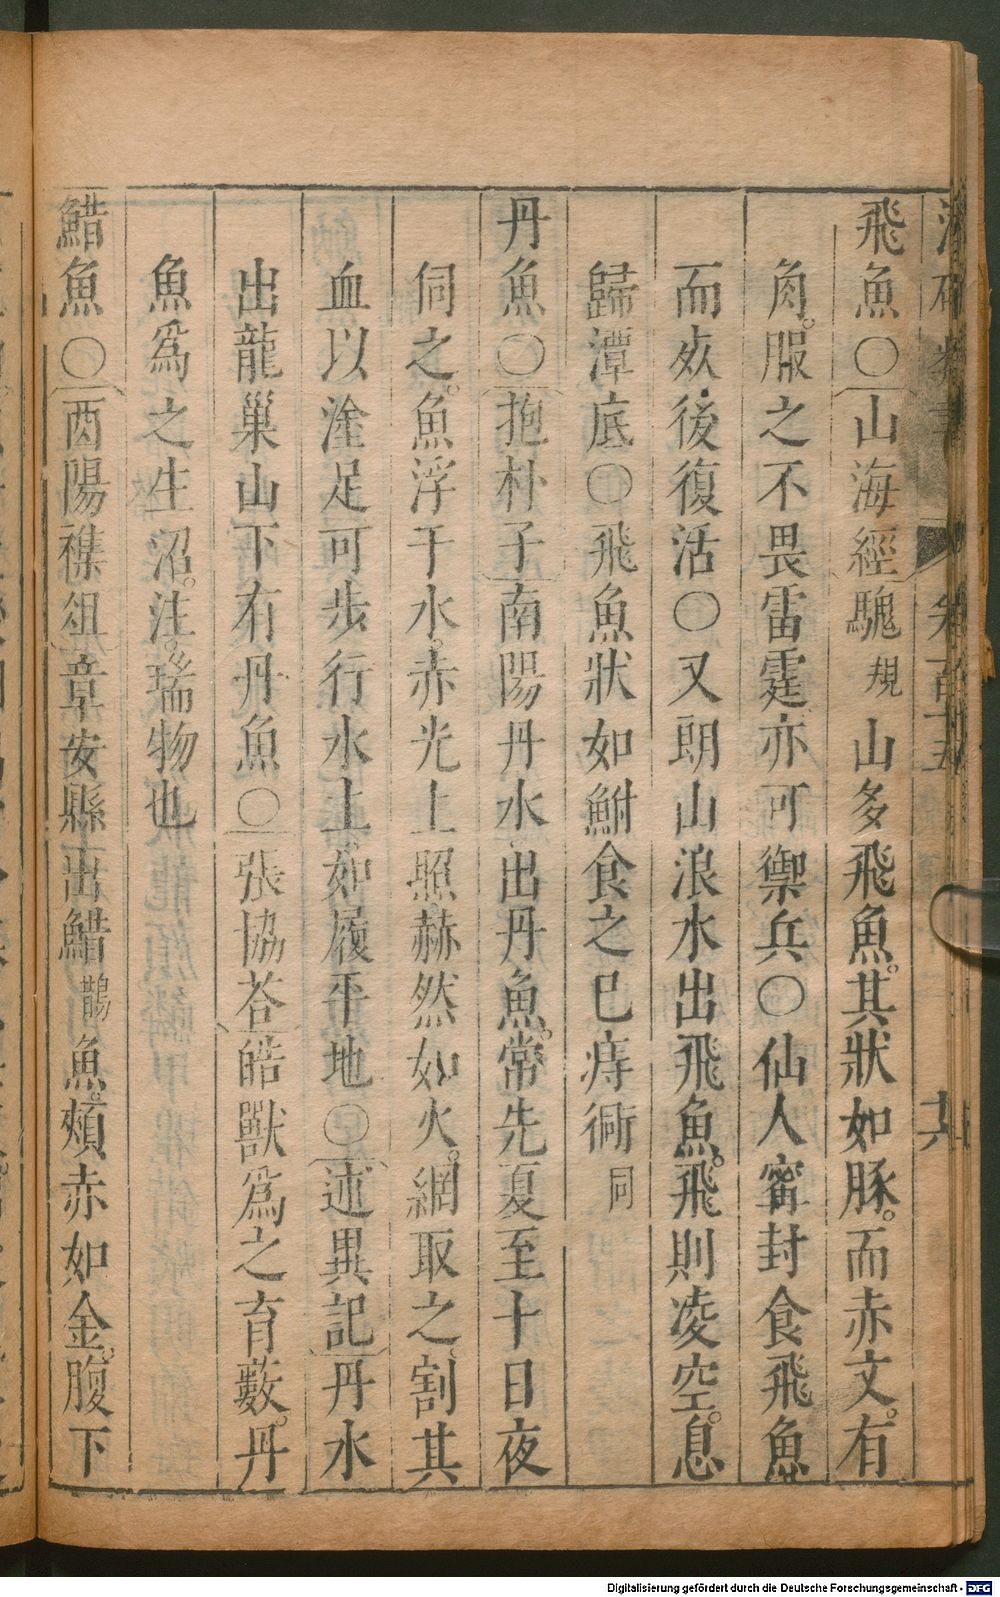 卷一百十五
十六
飛魚〇山海經騩規山多飛魚。其狀如豚。而赤文。有
角。服之不畏雷霆亦可禦兵〇仙人甯封食飛魚
而死後復活〇又朗山浪水出飛魚。飛則凌空。息
歸潭底〇飛魚狀如鮒食之巳痔衕同
丹魚〇抱朴子南陽丹水出丹魚。常先夏至十日夜
伺之。魚浮于水。赤光上照赫然如火。網取之割其
血以塗足可步行水上如履平地〇述異記丹水
出龍巢山下有丹魚〇張協荅皓獸爲之育藪。丹
魚爲之生沼。注。瑞物也
䱜魚〇酉陽襍俎章安縣出䱜鵲魚。頰赤如金。腹下
Digitalisierung gefördert durch die Deutsche Forschungsgemeinschaft - DFG